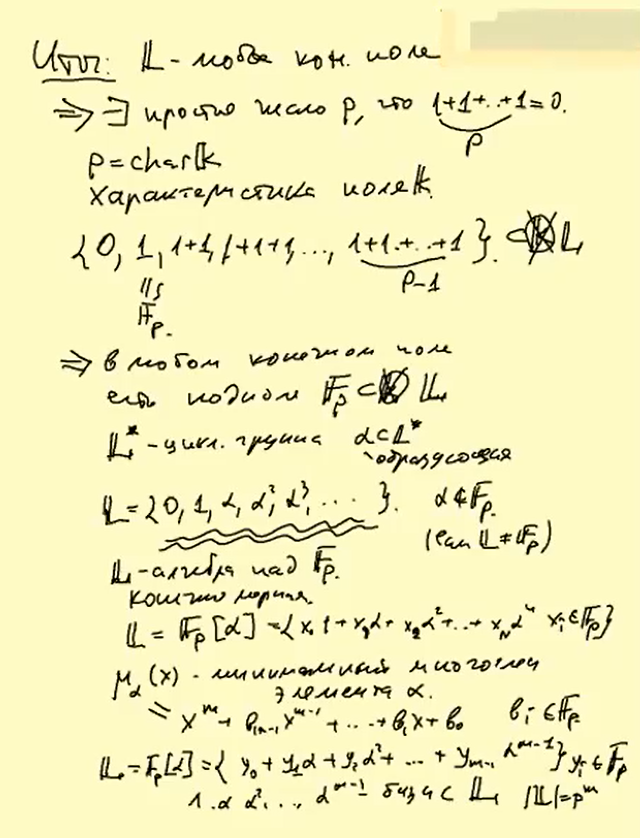 Итог: 𝕃 - любое кон. поле
⇒ ∃ простое число p, что 1+1+..+1=0.
p
p=char𝕜
характеристика поля 𝕜.
{0, 1, 1+1, 1+1+1, ..., 1+1+..+1}. ⊂ 𝕃
p-1
𝔽p.
⇒ в любом конечном поле
есть подполе 𝔽p ⊂ 𝕃
𝕃* - цикл. группа α⊂𝕃*
образующая
𝕃={0, 1, α, α², α³, ... }. α∉𝔽p.
(если 𝕃≠𝔽p)
𝕃 - алгебра над 𝔽p.
конечномерная.
𝕃 = 𝔽p[α] ={x₀1+x₁α+x₂α²+..+x_Nα^N x_i∈𝔽p}
μ_α(x) - минимальный многочлен
элемента α.
= x^m + b_{m-1}x^{m-1} + ... + b₁x + b₀ b_i∈𝔽p
𝕃=𝔽p[α]={ y₀+y₁α+y₂α²+ ... + y_{m-1}α^{m-1}} y_i∈𝔽p
1 α α² ... α^{m-1} базис 𝕃 |𝕃|=p^m